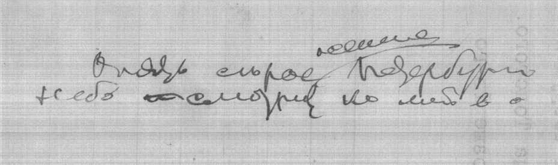 Опять серое Петербурга
небо смотрит ко мне в о